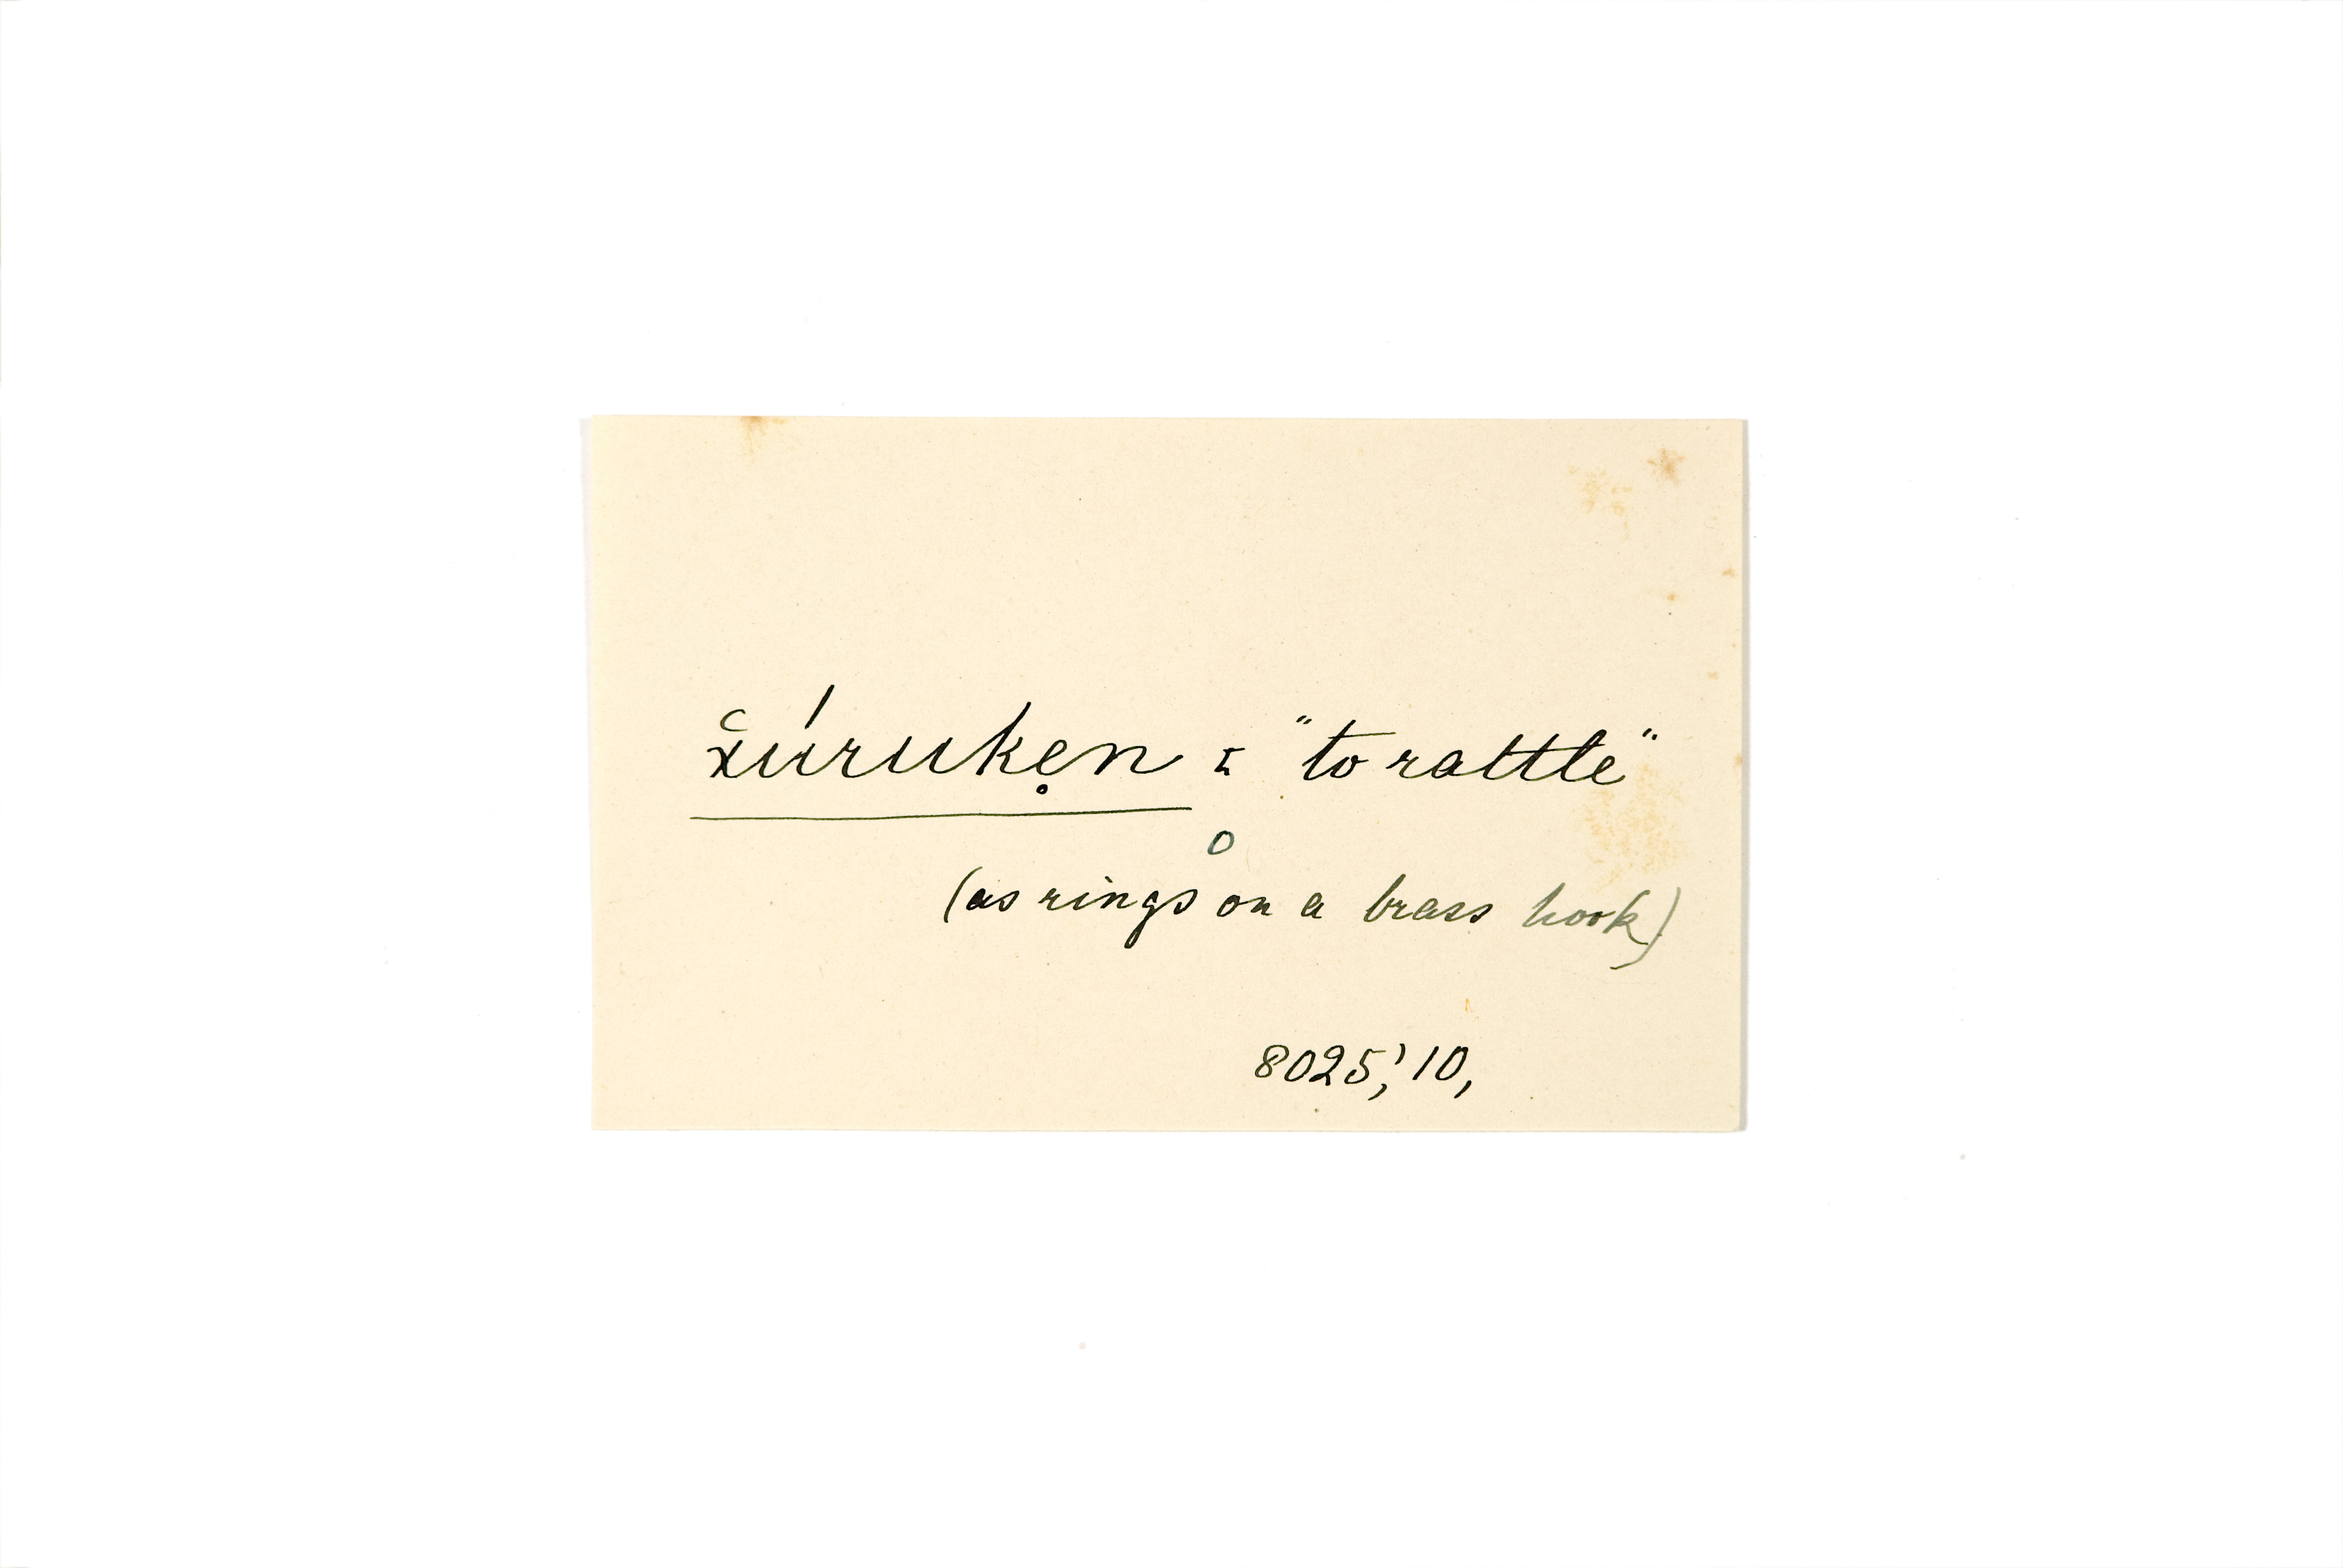 x͑úruke̥n = "to rattle"
o
(as rings on a brass hook)
8025,' 10,